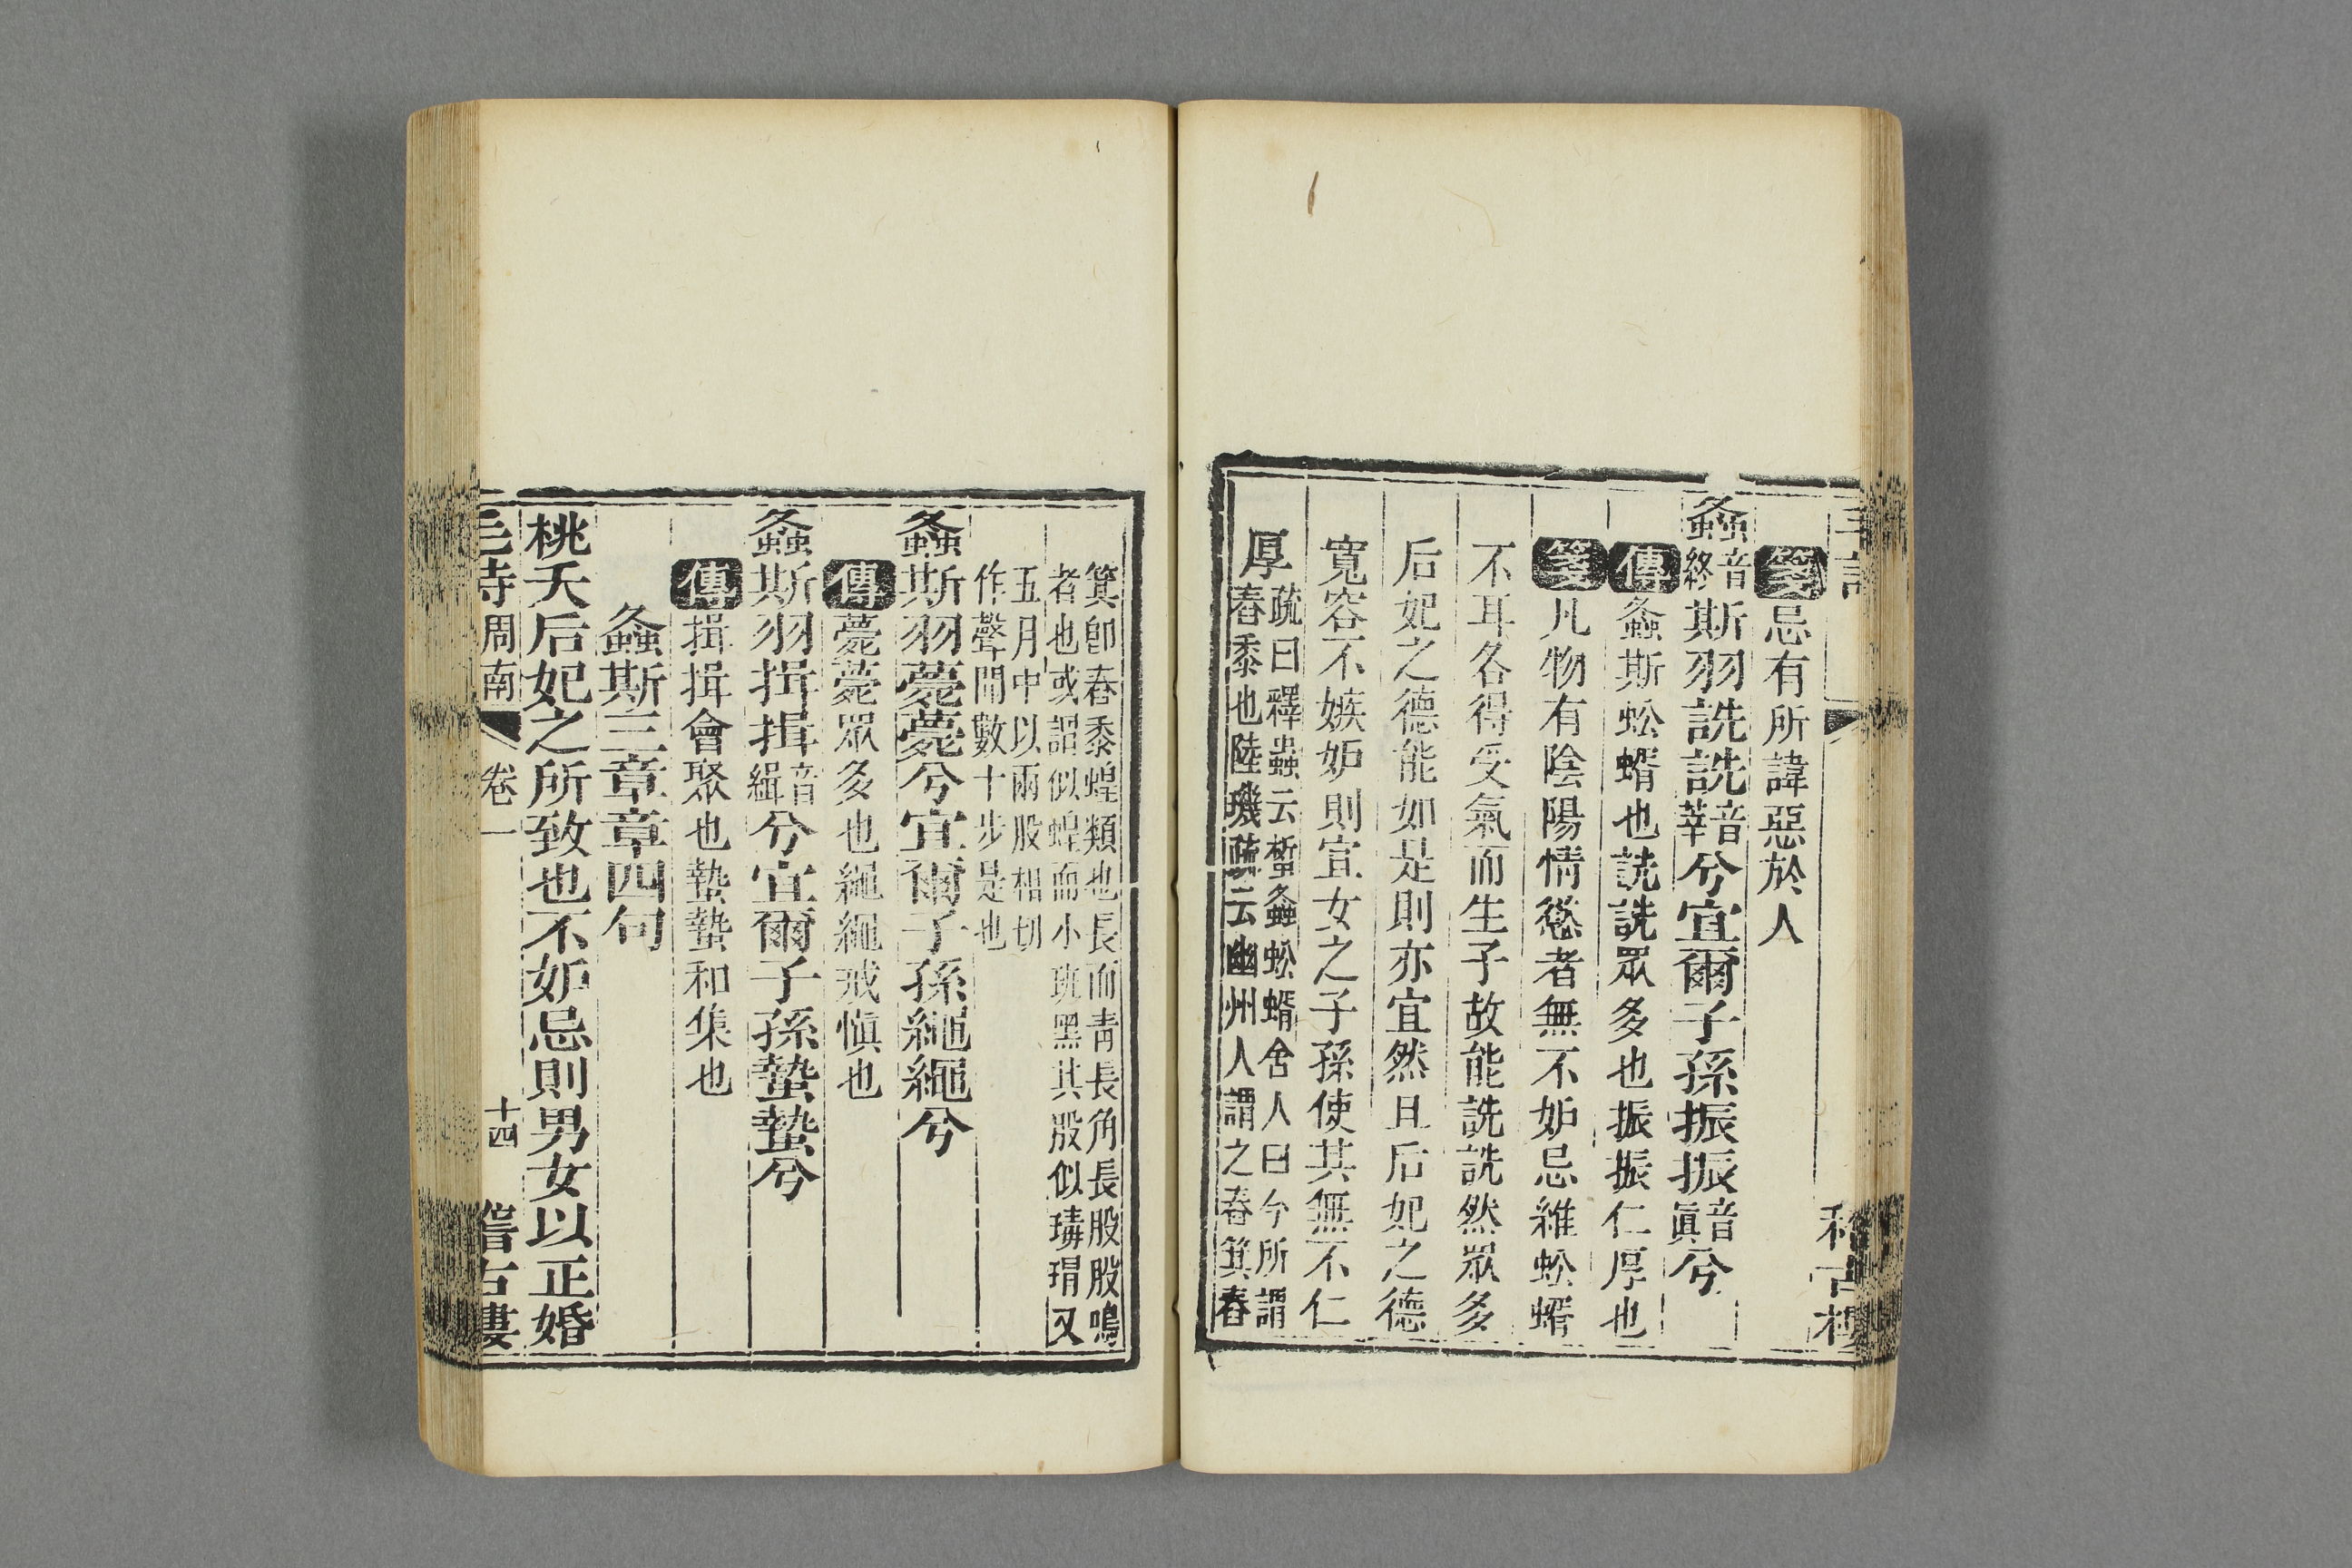 箋忌有所諱惡於人
螽音終斯羽詵詵音莘兮宜爾子孫振振音眞兮
傳螽斯蚣蝑也詵詵眾多也振振仁厚也
箋凡物有陰陽情慾者無不妒忌維蚣蝑
不耳各得受氣而生子故能詵詵然眾多
后妃之德能如是則亦宜然且后妃之德
寬容不嫉妒則宜女之子孫使其無不仁
厚疏曰釋蟲云蜤螽蚣蝑舍人曰今所謂
舂黍也陸璣疏云幽州人謂之舂箕舂
箕卽舂黍蝗類也長而青長角長股股鳴
者也或謂似蝗而小班黑其股似瑇瑁叉
五月中以兩股相切
作聲聞數十步是也
螽斯羽薨薨兮宜爾子孫繩繩兮
傳薨薨眾多也繩繩戒愼也
螽斯羽揖揖音緝兮宜爾子孫蟄蟄兮
傳揖揖會聚也蟄蟄和集也
螽斯三章章四句
桃夭后妃之所致也不妒忌則男女以正婚
毛詩周南 卷一 十四 稽古樓